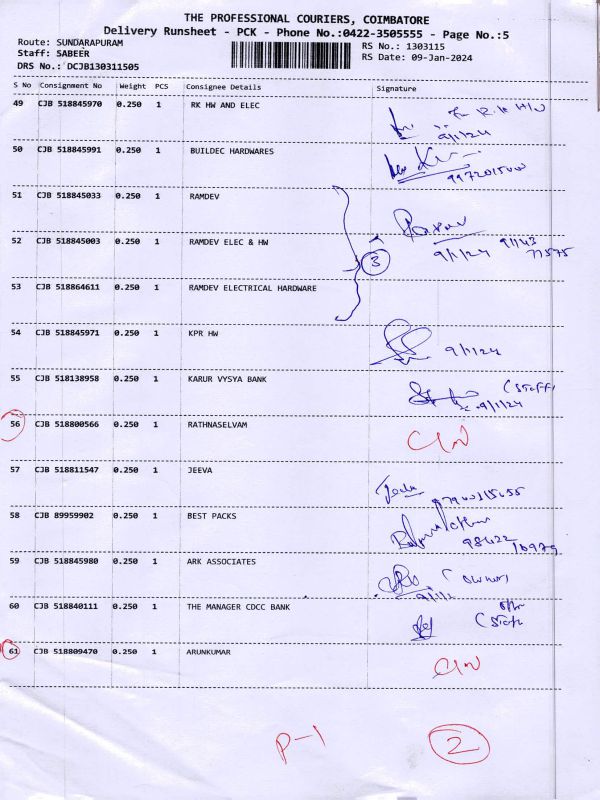 THE PROFESSIONAL COURIERS, COIMBATORE
Delivery Runsheet - PCK - Phone No.:0422-3505555 - Page No.:5
Route: SUNDARAPURAM
Staff: SABEER
DRS No.: DCJB130311505
RS No.: 1303115
RS Date: 09-Jan-2024
S No Consignment No Weight PCS Consignee Details Signature
49 CJB 518845970 0.250 1 RK HW AND ELEC
9/1/24
50 CJB 518845991 0.250 1 BUILDEC HARDWARES
51 CJB 518845033 0.250 1 RAMDEV
52 CJB 518845003 0.250 1 RAMDEV ELEC & HW
3 9/1/24
53 CJB 518864611 0.250 1 RAMDEV ELECTRICAL HARDWARE
54 CJB 518845971 0.250 1 KPR HW
9/1/24
55 CJB 518138958 0.250 1 KARUR VYSYA BANK
9/1/24
56 CJB 518800566 0.250 1 RATHNASELVAM
57 CJB 518811547 0.250 1 JEEVA
58 CJB 89959902 0.250 1 BEST PACKS
59 CJB 518845980 0.250 1 ARK ASSOCIATES
60 CJB 518840111 0.250 1 THE MANAGER CDCC BANK
61 CJB 518809470 0.250 1 ARUNKUMAR
P-1 2